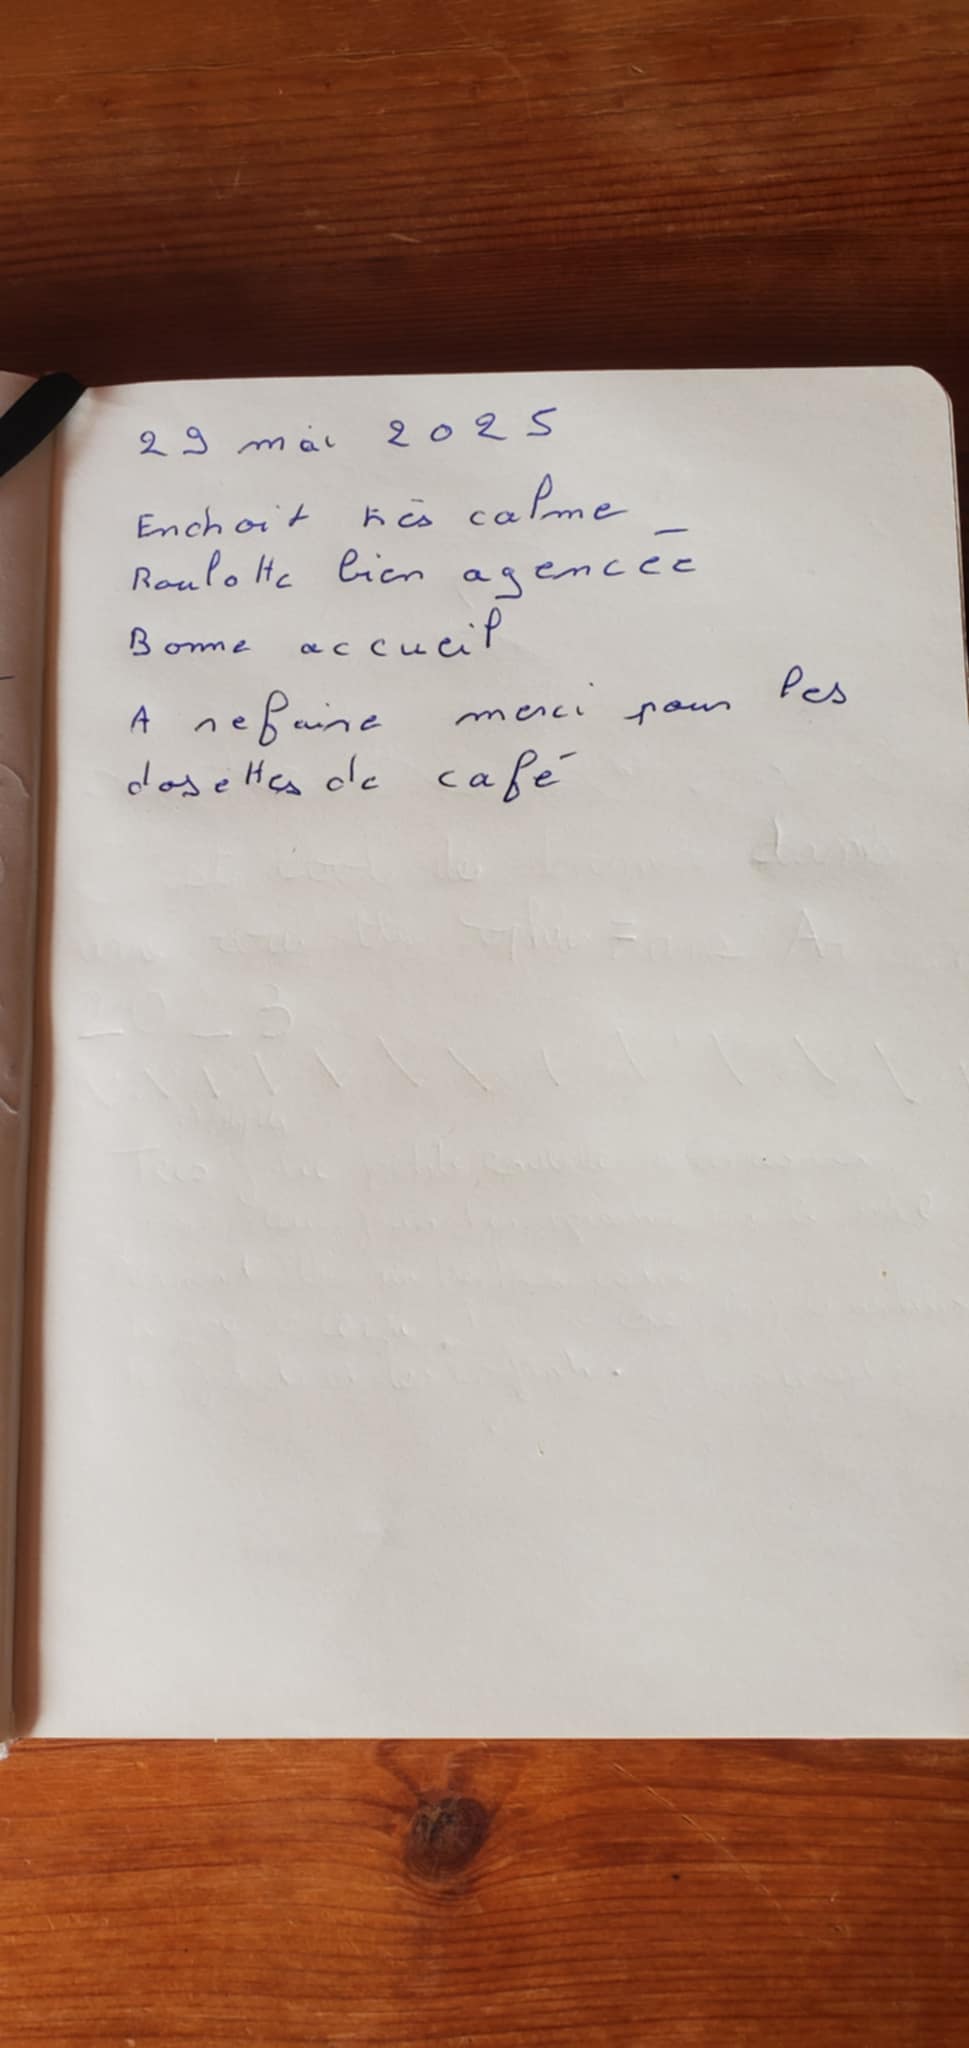 29 mai 2025
Enchoit très calme _
Roulotte bien agencée
Bonne accueil
A refaire merci pour les
dosettes de café